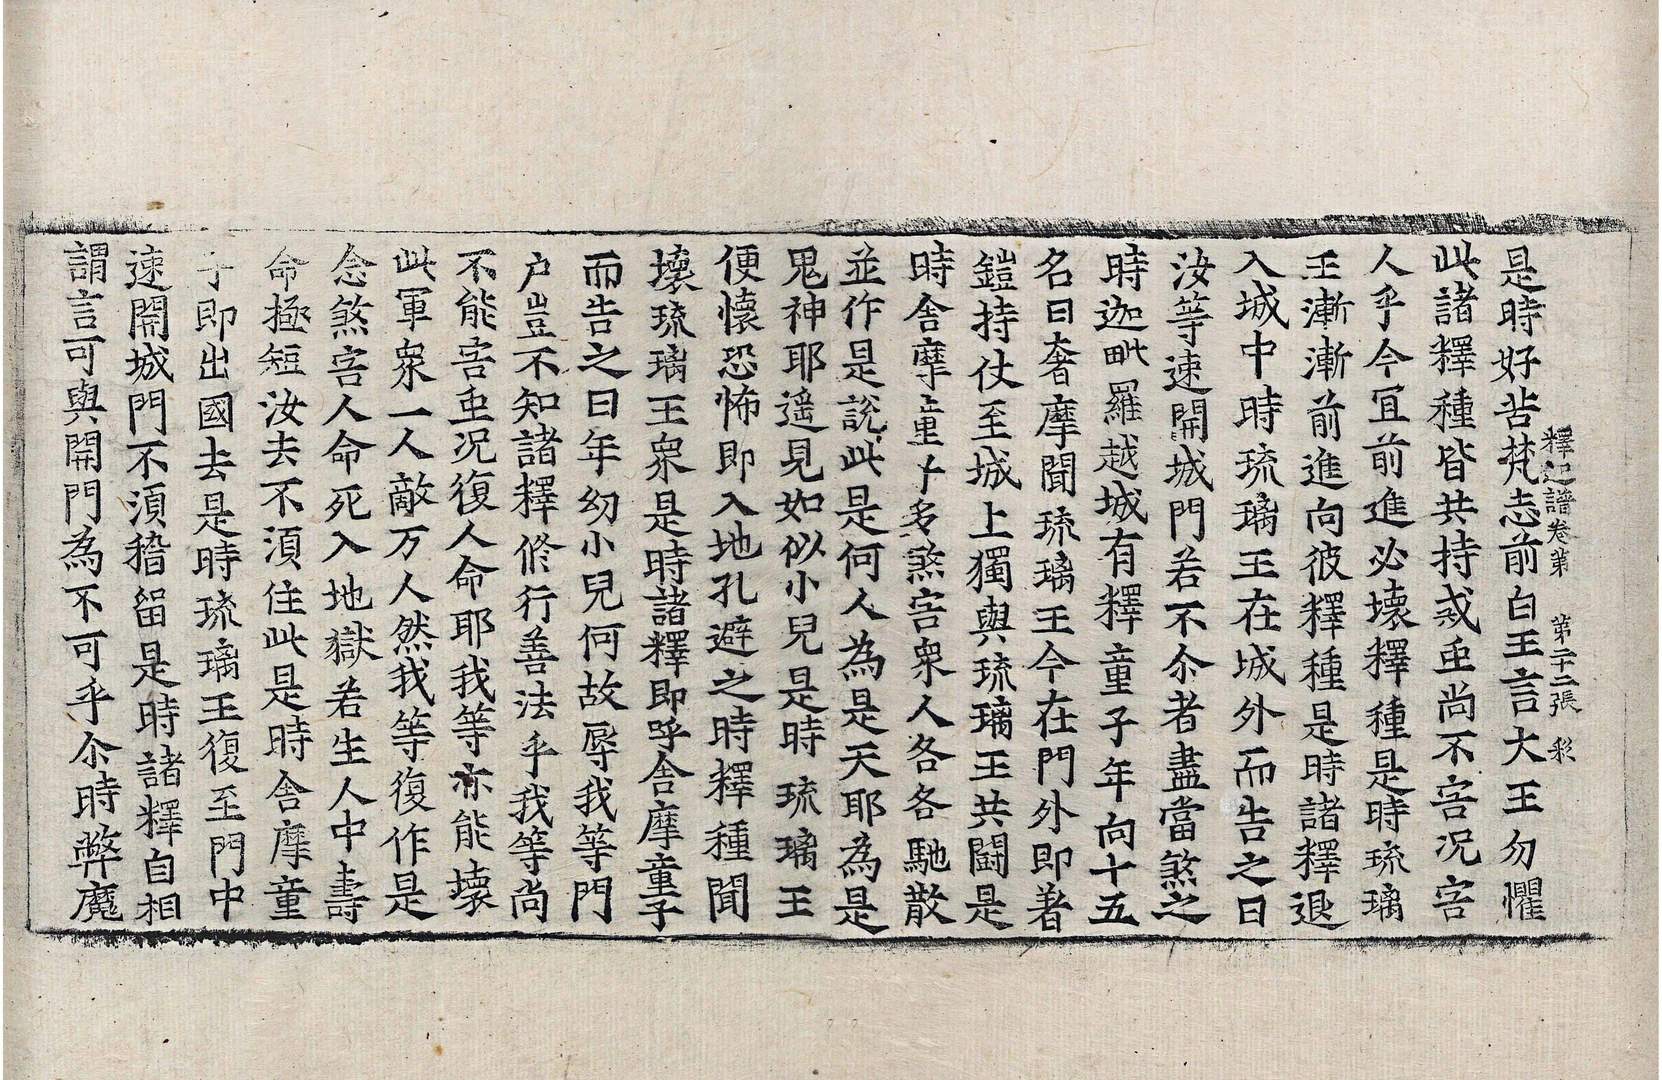 釋迦譜卷第　第二十二張　彩
是時好苦梵志前白王言大王勿懼
此諸釋種皆共持戒虫尚不害况害
人乎今冝前進必壊釋種是時琉璃
王漸漸前進向彼釋種是時諸釋退
入城中時琉璃王在城外而告之曰
汝等速開城門若不尒者盡當煞之
時迦毗羅越城有釋童子年向十五
名曰奢摩聞琉璃王今在門外即著
鎧持仗至城上獨與琉璃王共闘是
時舎摩童子多煞害衆人各各馳散
並作是說此是何人為是天耶為是
鬼神耶遥見如似小兒是時琉璃王
便懐恐怖即入地孔避之時釋種聞
壊琉璃王衆是時諸釋即呼舎摩童子
而告之曰年幼小兒何故辱我等門
户豈不知諸釋修行善法乎我等尚
不能害虫况復人命耶我等亦能壊
此軍衆一人敵万人然我等復作是
念煞害人命死入地獄若生人中壽
命極短汝去不湏住此是時舎摩童
子即出國去是時琉璃王復至門中
速開城門不湏稽留是時諸釋自相
謂言可與開門為不可乎尒時弊魔